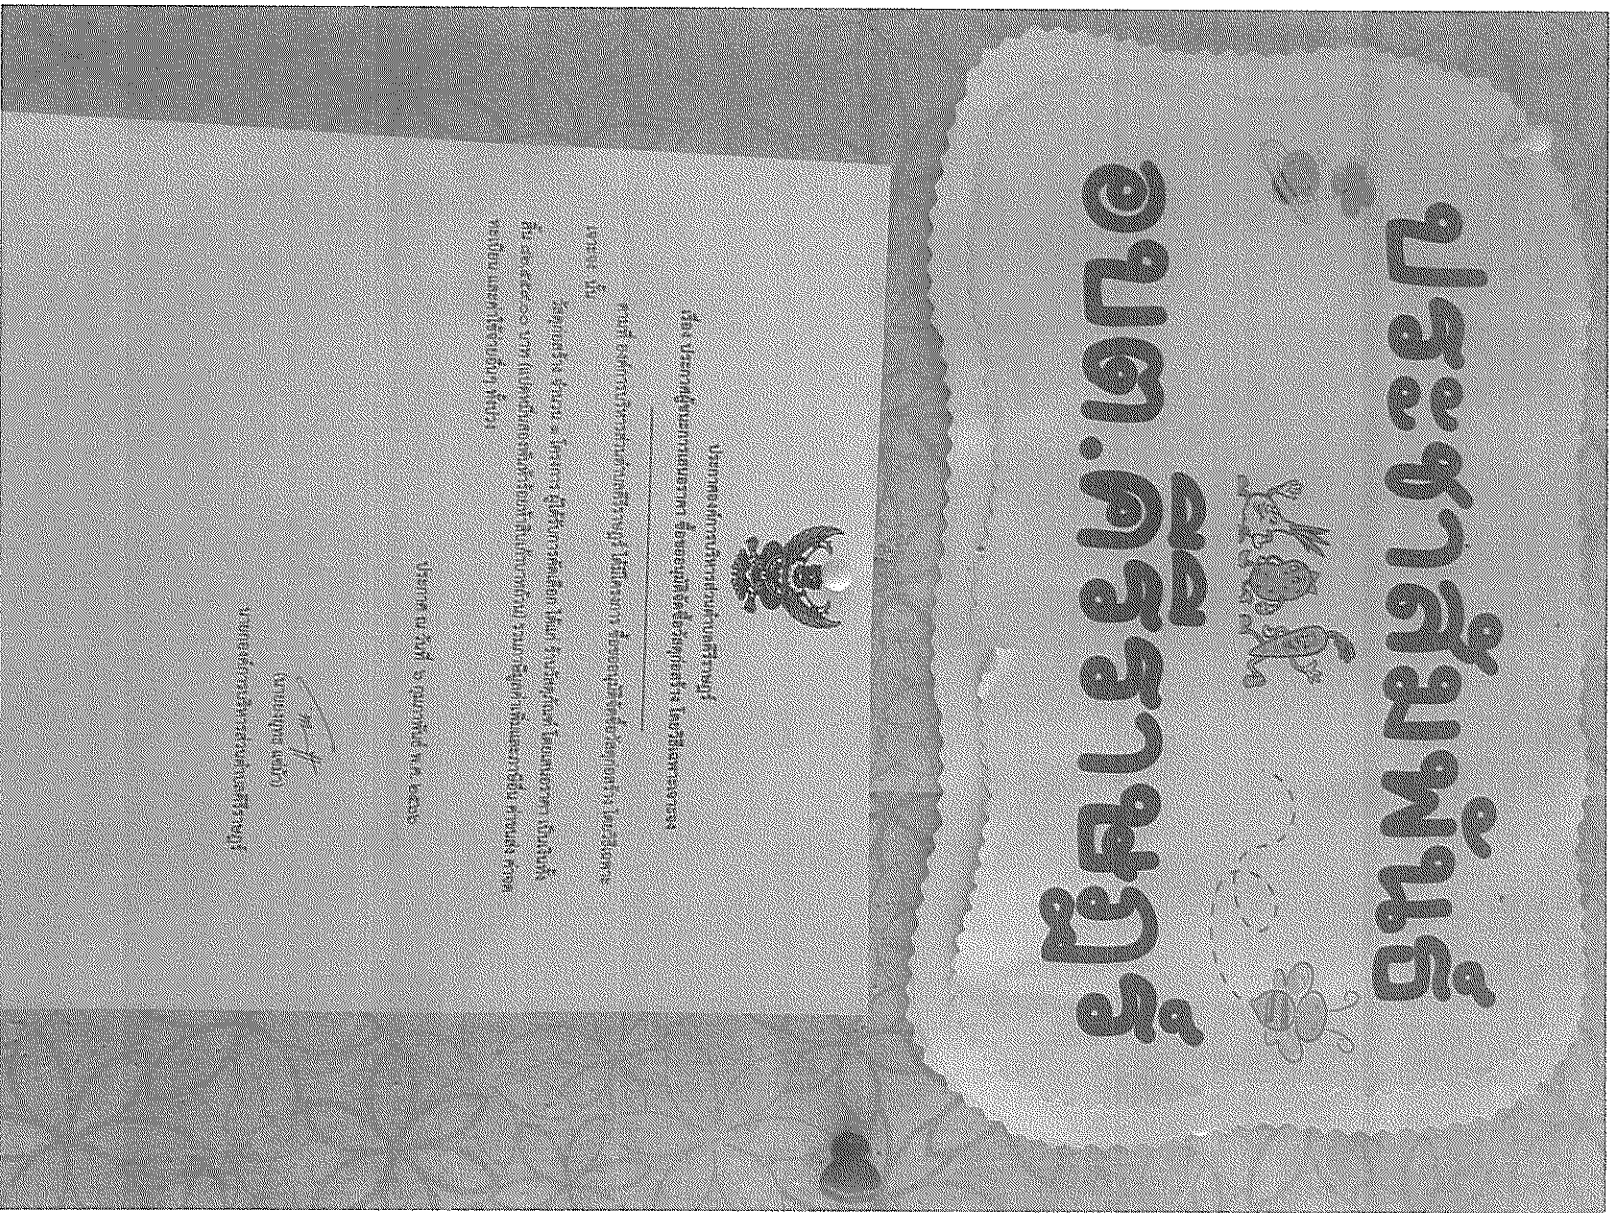 ประชาสัมพันธ์
อบต.คีรีราษฎร์
ประกาศองค์การบริหารส่วนตำบลคีรีราษฎร์
เรื่อง ประกาศผู้ชนะการเสนอราคา ซื้อขออนุมัติจัดซื้อวัสดุก่อสร้าง โดยวิธีเฉพาะเจาะจง
ตามที่ องค์การบริหารส่วนตำบลคีรีราษฎร์ ได้มีโครงการ ซื้อขออนุมัติจัดซื้อวัสดุก่อสร้าง โดยวิธีเฉพาะ
เจาะจง นั้น
วัสดุก่อสร้าง จำนวน ๑ โครงการ ผู้ได้รับการคัดเลือก ได้แก่ โดยเสนอราคา เป็นเงินทั้ง
สิ้น บาท รวมภาษีมูลค่าเพิ่มและภาษีอื่น ค่าขนส่ง ค่าจด
ทะเบียน และค่าใช้จ่ายอื่นๆ ทั้งปวง
ประกาศ ณ วันที่ ๖ กุมภาพันธ์ พ.ศ.
นายกองค์การบริหารส่วนตำบลคีรีราษฎร์